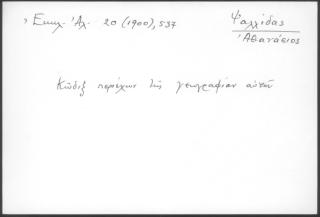 Ἐκκλ. Ἀλ. 20 (1900), 537
Ψαλλίδας
Ἀθανάσιος
Κῶδιξ περιέχων τὴν γεωγραφίαν αὐτοῦ